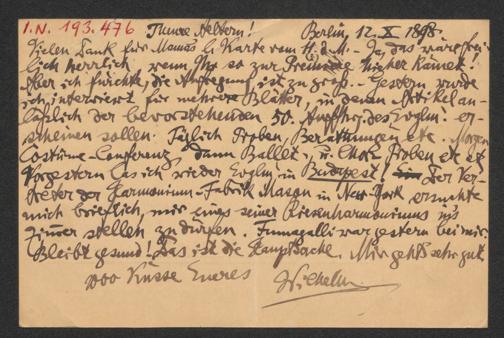 I.N. 193.476
Theure Aeltern! Berlin, 12. X. 1898.
Vielen Dank für Mamas l. Karte vom 11. d. M. – Ja, das wäre frei-
lich herrlich wenn Ihr so zur Premiere hieher kämet!
Aber ich fürchte, die Aufregung ist zu groß. – Gestern wurde
ich interviewt für mehrere Blätter, in denen Artikel an-
läßlich der bevorstehenden 50. Aufführg. des Evglm. er-
scheinen sollen. Täglich Proben, Berathungen etc. Morgen
Costüme-Conferenz, dann Ballet-, u. Chor Proben etc. etc.
Vorgestern las ich wieder Evglm. in Budapest! Der Ver-
treter der Harmonium-Fabrik Mason in New-York ersuchte
mich brieflich, mir eines seiner Riesenharmoniums ins
Zimmer stellen zu dürfen. Fumagalli war gestern bei mir.
Bleibt gesund! Das ist die Hauptsache. Mir geht's sehr gut.
1000 Küsse Eueres Wilhelm